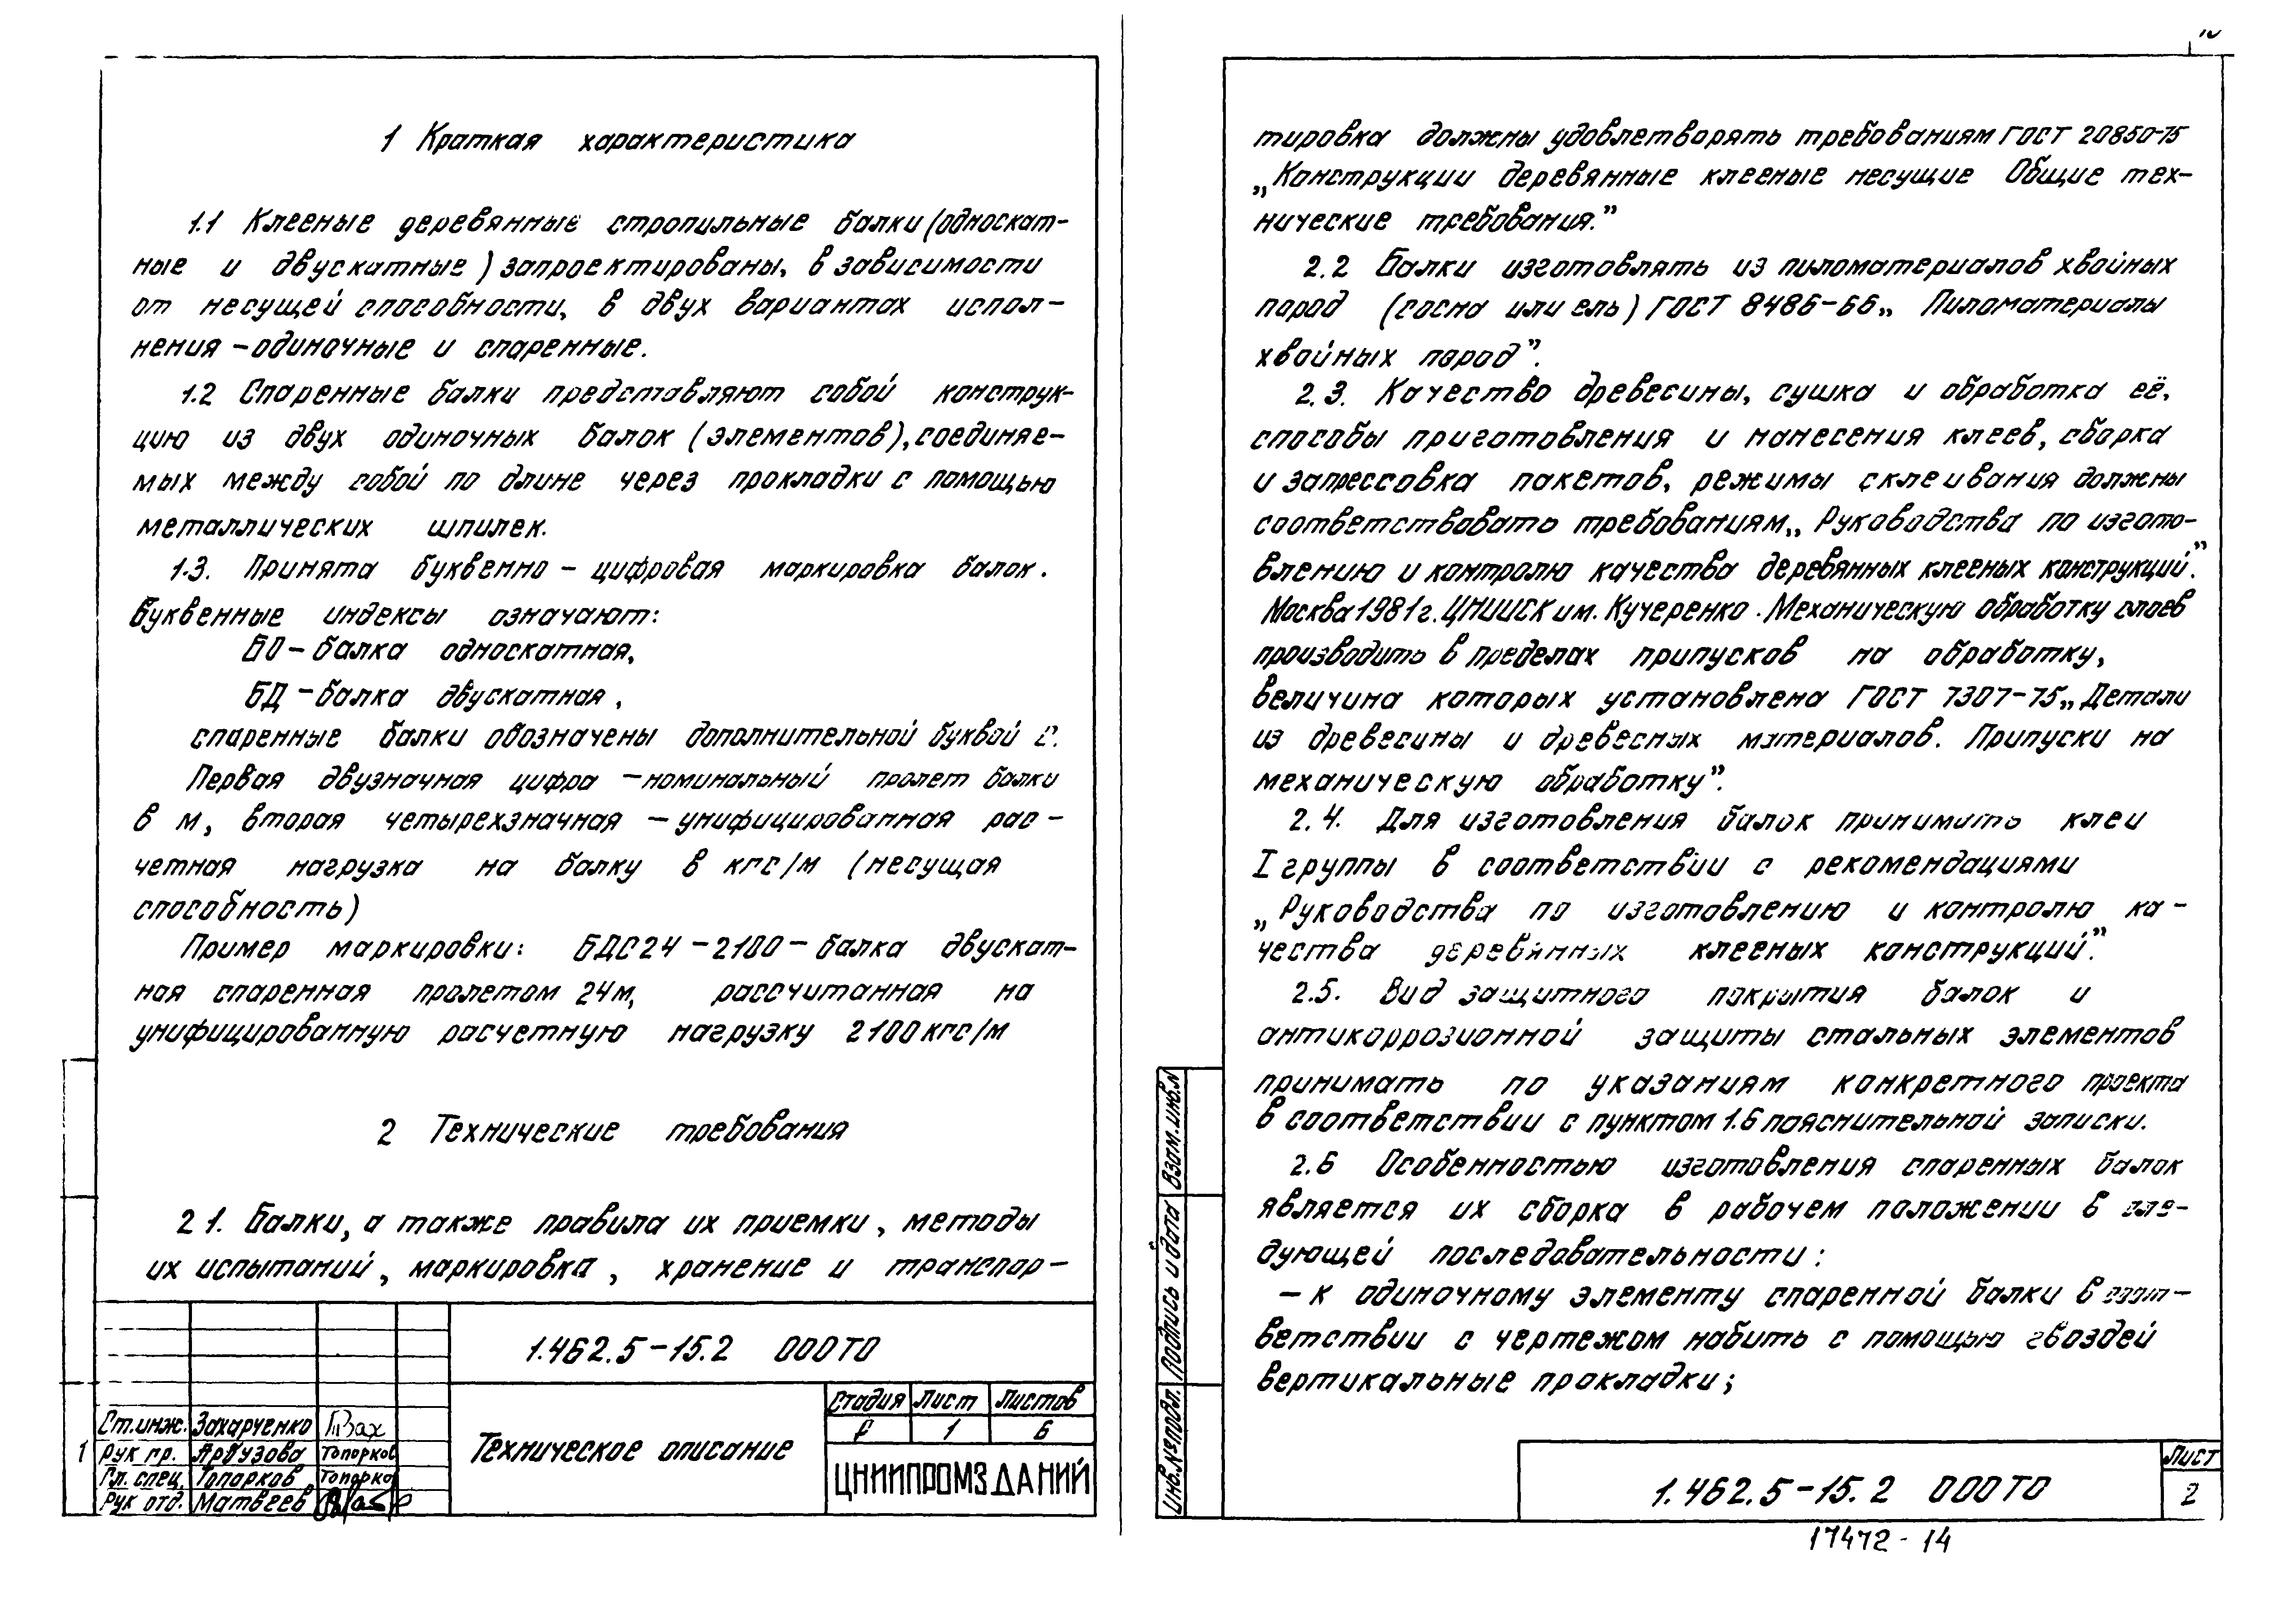 1 Краткая характеристика
1.1 Клееные деревянные стропильные балки (односкат-
ные и двускатные) запроектированы, в зависимости
от несущей способности, в двух вариантах испол-
нения - одиночные и спаренные.
1.2 Спаренные балки представляют собой конструк-
цию из двух одиночных балок (элементов), соединяе-
мых между собой по длине через прокладки с помощью
металлических шпилек.
1.3. Принята буквенно - цифровая маркировка балок.
Буквенные индексы означают:
БО - балка односкатная,
БД - балка двускатная,
спаренные балки обозначены дополнительной буквой С.
Первая двузначная цифра - номинальный пролет балки
в м, вторая четырехзначная - унифицированная рас-
четная нагрузка на балку в кгс/м (несущая
способность)
Пример маркировки: БДС24-2100 - балка двускат-
ная спаренная пролетом 24м, рассчитанная на
унифицированную расчетную нагрузку 2100кгс/м
2 Технические требования
2 1. Балки, а также правила их приемки, методы
их испытаний, маркировка, хранение и транспор-
1.462.5-15.2 000ТО
Стадия Лист Листов
Р 1 6
Техническое описание
ЦНИИПРОМЗДАНИЙ
Ст.инж. Захарченко
Рук гр. Арбузова Топорков
Гл. спец. Топорков
Рук отд. Матвеев
1
тировка должны удовлетворять требованиям ГОСТ 20850-75
„Конструкции деревянные клееные несущие Общие тех-
нические требования.”
2.2 Балки изготовлять из пиломатериалов хвойных
пород (сосна или ель) ГОСТ 8486-66„ Пиломатериалы
хвойных пород”.
2.3. Качество древесины, сушка и обработка её,
способы приготовления и нанесения клеев, сборка
и запрессовка пакетов, режимы склеивания должны
соответствовать требованиям„ Руководства по изгото-
влению и контролю качества деревянных клееных конструкций”.
Москва 1981г. ЦНИИСК им. Кучеренко. Механическую обработку слоев
производить в пределах припусков на обработку,
величина которых установлена ГОСТ 7307-75„Детали
из древесины и древесных материалов. Припуски на
механическую обработку”.
2.4. Для изготовления балок принимать клеи
I группы в соответствии с рекомендациями
„Руководства по изготовлению и контролю ка-
чества деревянных клееных конструкций”.
2.5. Вид защитного покрытия балок и
антикоррозионной защиты стальных элементов
принимать по указаниям конкретного проекта
в соответствии с пунктом 1.6 пояснительной записки.
2.6 Особенностью изготовления спаренных балок
является их сборка в рабочем положении в сле-
дующей последовательности:
- к одиночному элементу спаренной балки в соот-
ветствии с чертежом набить с помощью гвоздей
вертикальные прокладки;
Взам.инв.N
Подпись и дата
Инв.№подл.
1.462.5-15.2 000ТО
Лист
2
17472-14